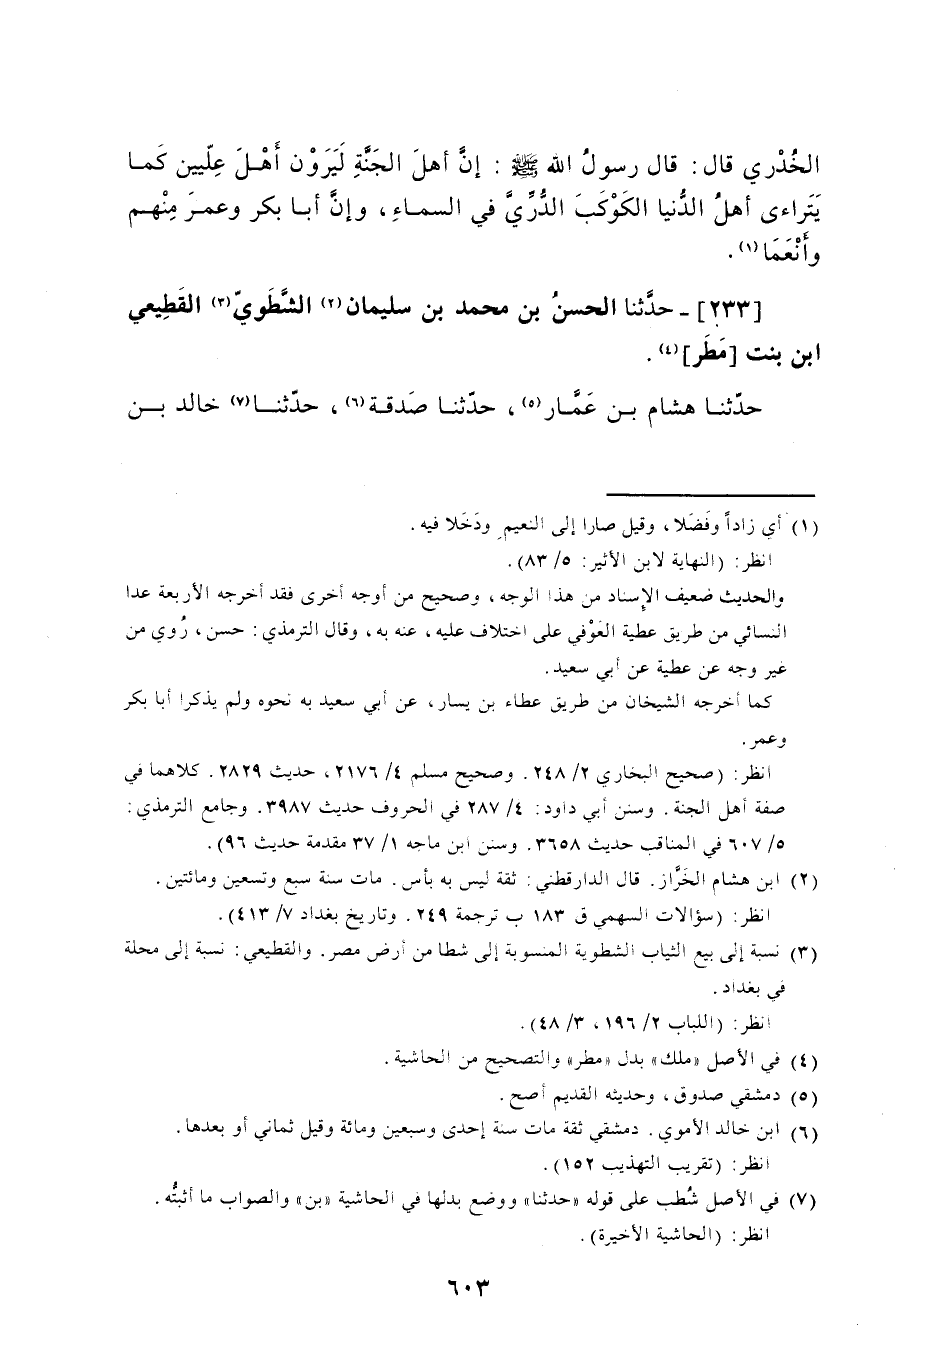 الخُدْري قال: قال رسولُ الله ﷺ : إنَّ أهلَ الجَنَّةِ لَيَرَوْن أَهْلَ عِلّيين كَما
يَتَراءى أهلُ الدُّنيا الكَوْكَبَ الدُّرِّيَّ في السماءِ، وإنَّ أبا بكر وعمرَ مِنْهم
وأَنْعَمَا(١).
[٢٣٣] - حدَّثنا الحسنُ بن محمد بن سليمان(٢) الشَّطَويّ(٣) القَطِيعي
ابن بنت [مَطَر](٤).
حدّثنا هشام بن عَمَّار(٥)، حدّثنا صَدقة(٦)، حدّثنا(٧) خالد بن
(١) أي زاداً وفَضَلا، وقيل صارا إلى النعيم ودَخَلا فيه.
انظر: (النهاية لابن الأثير: ٥/ ٨٣).
والحديث ضعيف الإسناد من هذا الوجه، وصحيح من أوجه أخرى فقد أخرجه الأربعة عدا
النسائي من طريق عطية العَوْفي على اختلاف عليه، عنه به، وقال الترمذي: حسن، رُوي من
غير وجه عن عطية عن أبي سعيد.
كما أخرجه الشيخان من طريق عطاء بن يسار، عن أبي سعيد به نحوه ولم يذكرا أبا بكر
وعمر.
انظر: (صحيح البخاري ٢/ ٢٤٨. وصحيح مسلم ٤/ ٢١٧٦، حديث ٢٨٢٩. كلاهما في
صفة أهل الجنة. وسنن أبي داود: ٤/ ٢٨٧ في الحروف حديث ٣٩٨٧. وجامع الترمذي:
٥/ ٦٠٧ في المناقب حديث ٣٦٥٨. وسنن ابن ماجه ١/ ٣٧ مقدمة حديث ٩٦).
(٢) ابن هشام الخَزَّاز. قال الدارقطني: ثقة ليس به بأس. مات سنة سبع وتسعين ومائتين.
انظر: (سؤالات السهمي ق ١٨٣ ب ترجمة ٢٤٩. وتاريخ بغداد ٧/ ٤١٣).
(٣) نسبة إلى بيع الثياب الشطوية المنسوبة إلى شطا من أرض مصر. والقطيعي: نسبة إلى محلة
في بغداد.
انظر: (اللباب ٢/ ١٩٦، ٣/ ٤٨).
(٤) في الأصل «ملك» بدل «مطر» والتصحيح من الحاشية.
(٥) دمشقي صدوق، وحديثه القديم أصح.
(٦) ابن خالد الأموي. دمشقي ثقة مات سنة إحدى وسبعين ومائة وقيل ثماني أو بعدها.
انظر: (تقريب التهذيب ١٥٢).
(٧) في الأصل شُطب على قوله «حدثنا» ووضع بدلها في الحاشية «بن» والصواب ما أثبتُّه.
انظر: (الحاشية الأخيرة).
٦٠٣